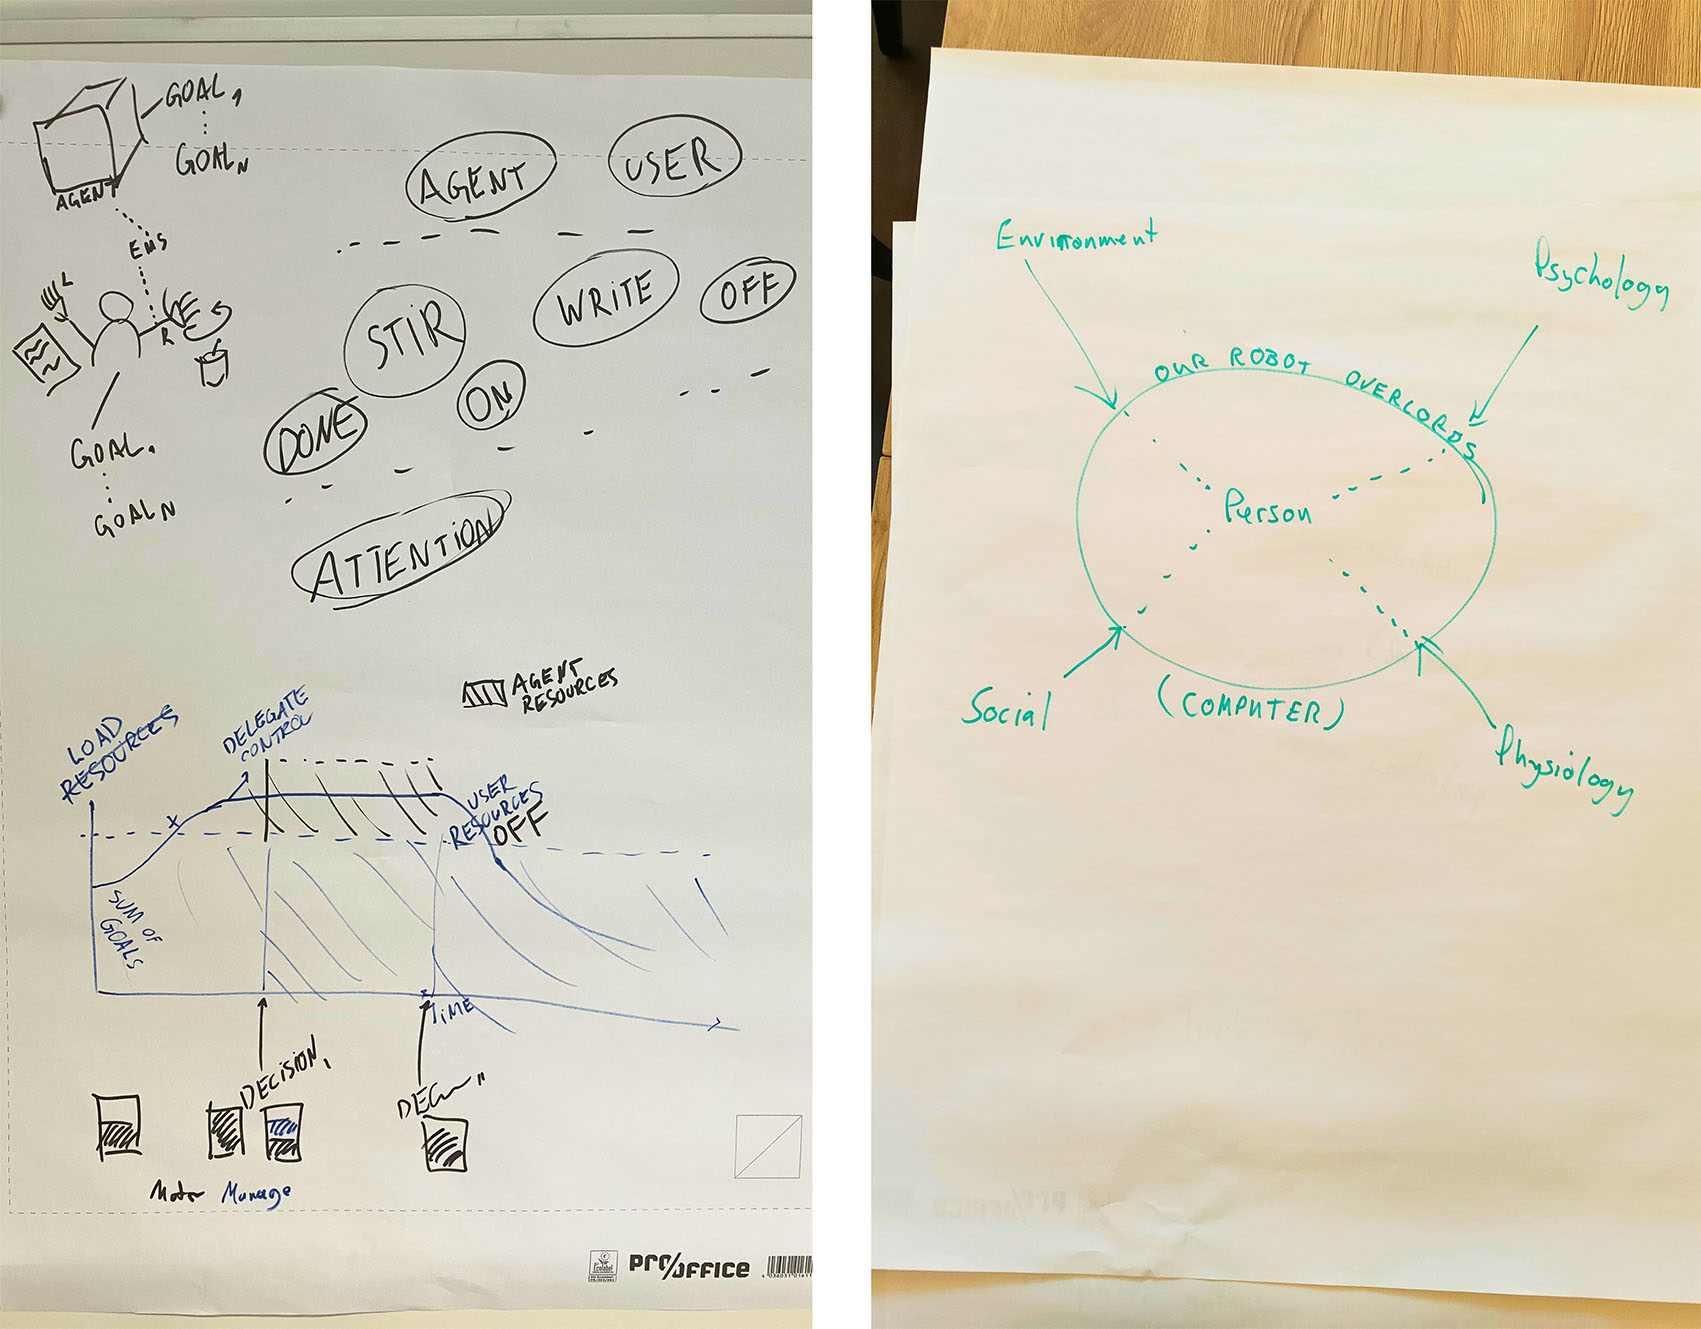 GOAL,
GOALN
AGENT
EMS
L
R
GOAL,
GOALN
AGENT
USER
STIR
WRITE
OFF
DONE
ON
ATTENTION
AGENT
RESOURCES
LOAD
RESOURCES
DELEGATE
CONTROL
USER
RESOURCES
OFF
SUM OF
GOALS
TIME
DECISION,
Motor Manage
Ecolabel
PRO/OFFICE
Environment
Psychology
OUR ROBOT OVERLORDS
Person
Social
(COMPUTER)
Physiology